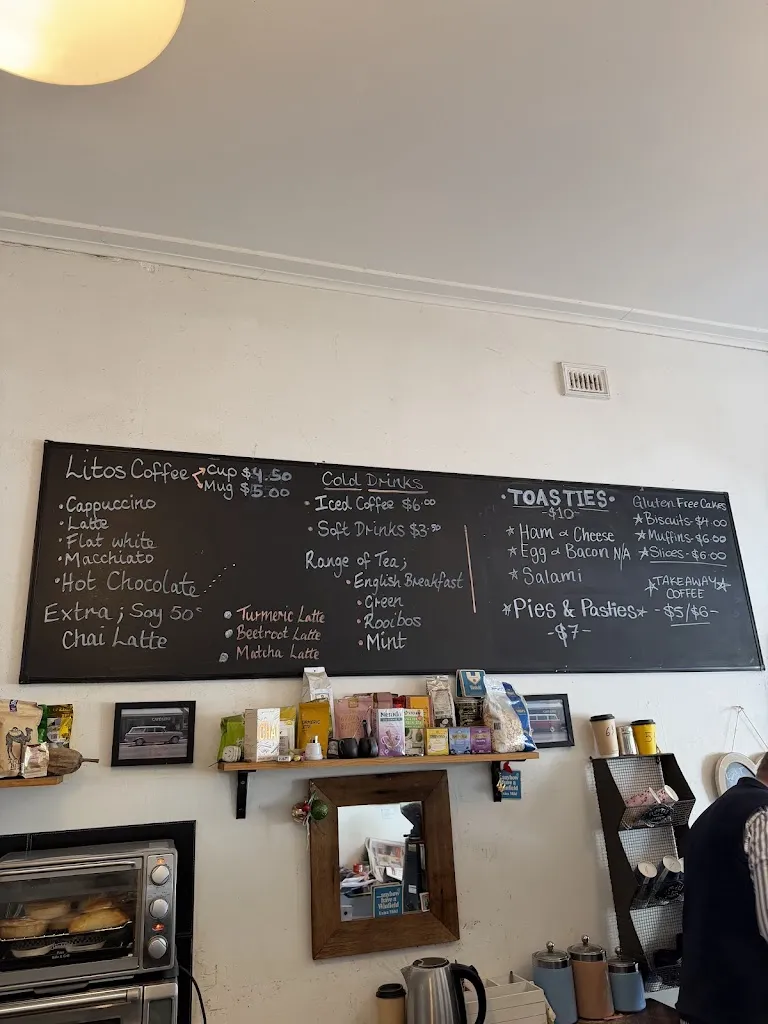 Litos Coffee
Cup $4.50
Mug $5.00
Cappuccino
Latte
Flat white
Macchiato
Hot Chocolate
Extra; Soy 50c
Chai Latte
Turmeric Latte
Beetroot Latte
Matcha Latte
Cold Drinks
Iced Coffee $6.00
Soft Drinks $3.50
Range of Tea;
English Breakfast
Green
Rooibos
Mint
TOASTIES
-$10-
Ham & Cheese
Egg & Bacon N/A
Salami
Pies & Pasties
-$7-
Gluten Free Cakes
Biscuits $4.00
Muffins $6.00
Slices $6.00
TAKEAWAY
COFFEE
-$5/$6-